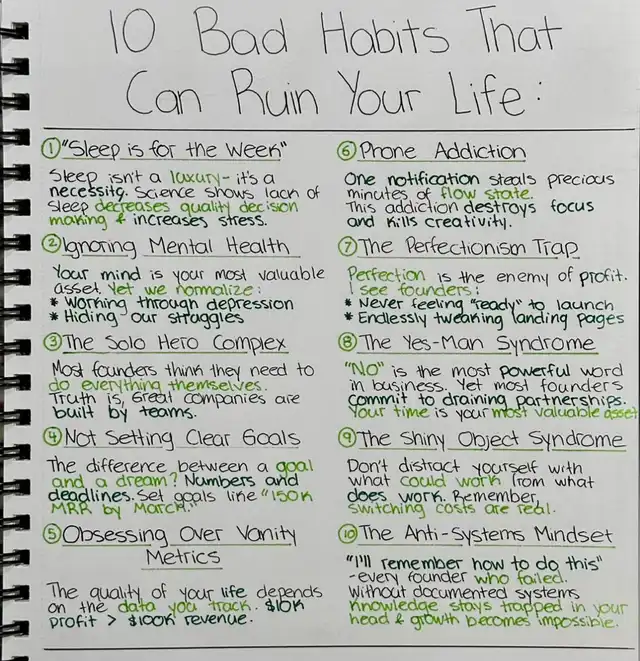 10 Bad Habits That
Can Ruin Your Life:
1 "Sleep is for the Week"
Sleep isn't a luxury - it's a
necessity. Science shows lack of
sleep decreases quality decision
making & increases stress.
2 Ignoring Mental Health
Your mind is your most valuable
asset. Yet we normalize:
* Working through depression
* Hiding our struggles
3 The Solo Hero Complex
Most founders think they need to
do everything themselves.
Truth is, Great companies are
built by teams.
4 Not Setting Clear Goals
The difference between a goal
and a dream? Numbers and
deadlines. Set goals like "150K
MRR by March."
5 Obsessing Over Vanity
Metrics
The quality of your life depends
on the data you track. $10K
profit > $100K revenue.
6 Phone Addiction
One notification steals precious
minutes of flow state.
This addiction destroys focus
and kills creativity.
7 The Perfectionism Trap
Perfection is the enemy of profit.
I see founders:
* Never feeling "ready" to launch
* Endlessly tweaking landing pages
8 The Yes-Man Syndrome
"No" is the most powerful word
in business. Yet most founders
commit to draining partnerships.
Your time is your most valuable asset
9 The Shiny Object Syndrome
Don't distract yourself with
what could work from what
does work. Remember,
switching costs are real.
10 The Anti-Systems Mindset
"I'll remember how to do this"
-every founder who failed.
Without documented systems
knowledge stays trapped in your
head & growth becomes impossible.